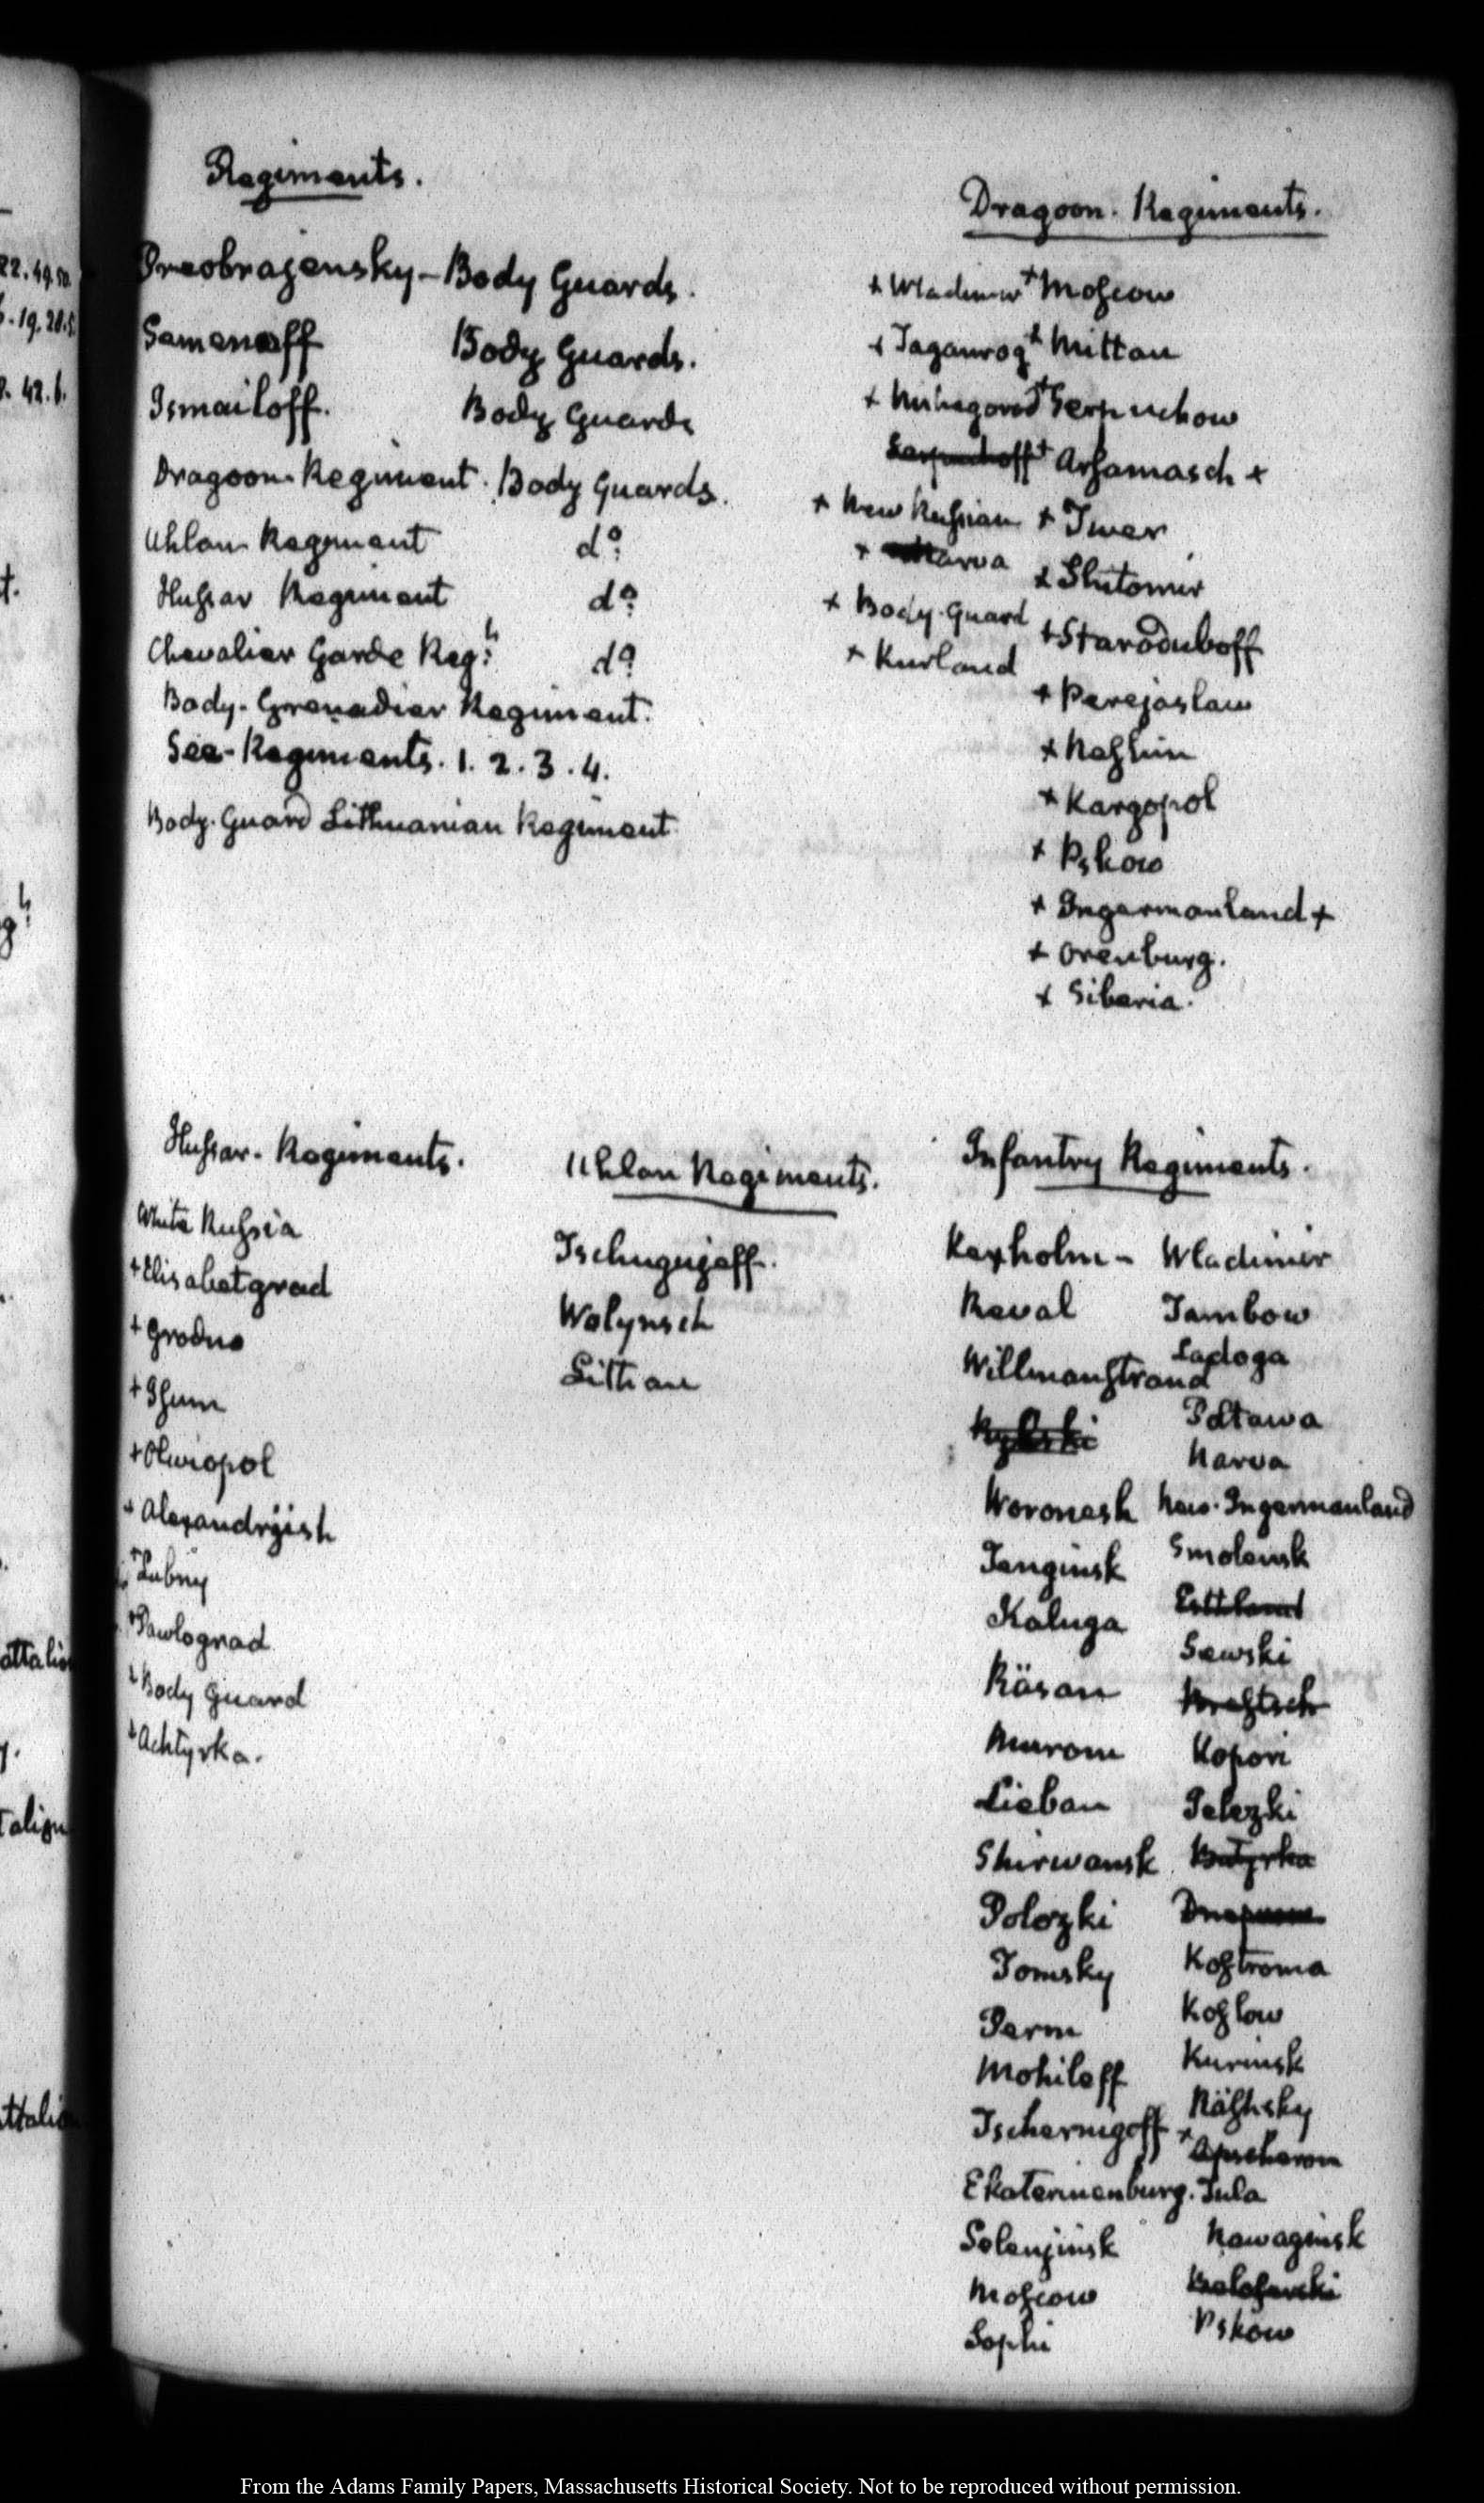 Regiments.
Preobragensky - Body Guards.
Semenoff Body Guards.
Ismailoff. Body Guards
Dragoon-Regiment. Body Guards.
Uhlan Regiment do.
Hussar Regiment do.
Chevalier Garde Regt. do.
Body-Grenadier Regiment.
See-Regiments. 1. 2. 3. 4.
Body-Guard Lithuanian Regiment
Dragoon. Regiments.
+ Wladimir + Moscow
+ Taganrog + Mittau
+ Nishegorod + Serpuchow
Serpuchoff + Arsamasch +
+ New Russian + Twer
+ Narva + Shitomir
+ Body-Guard + Staroduboff
+ Kurland
+ Perejaslaw
+ Neshin
+ Kargopol
+ Pskow
+ Ingermanland +
+ Orenburg.
+ Siberia.
Hussar-Regiments.
White Russia
+ Elisabetgrad
+ Grodno
+ Isum
+ Olwiopol
+ Alexandrijish
+ Lubny
+ Pawlograd
+ Body Guard
+ Achtyrka.
Uhlan Regiments.
Tschugujeff.
Wolynsch
Littau
Infantry Regiments.
Kexholm - Wladimir
Reval Tambow
Willmanstrand Ladoga
Rylski Poltawa
Narva
Woronesh New-Ingermanland
Tenginsk Smolensk
Kaluga Esthland
Sewski
Räsan
Murom Kopori
Lieban Pelezki
Shirwansk Butyrka
Polozki
Tomsky Kostroma
Perm Koslow
Mohileff Kurinsk
Tschernigoff Näshsky
+ Apscheron
Ekaterinenburg. Tula
Selenjinsk Nawaginsk
Moscow
Sophi Pskow
From the Adams Family Papers, Massachusetts Historical Society. Not to be reproduced without permission.